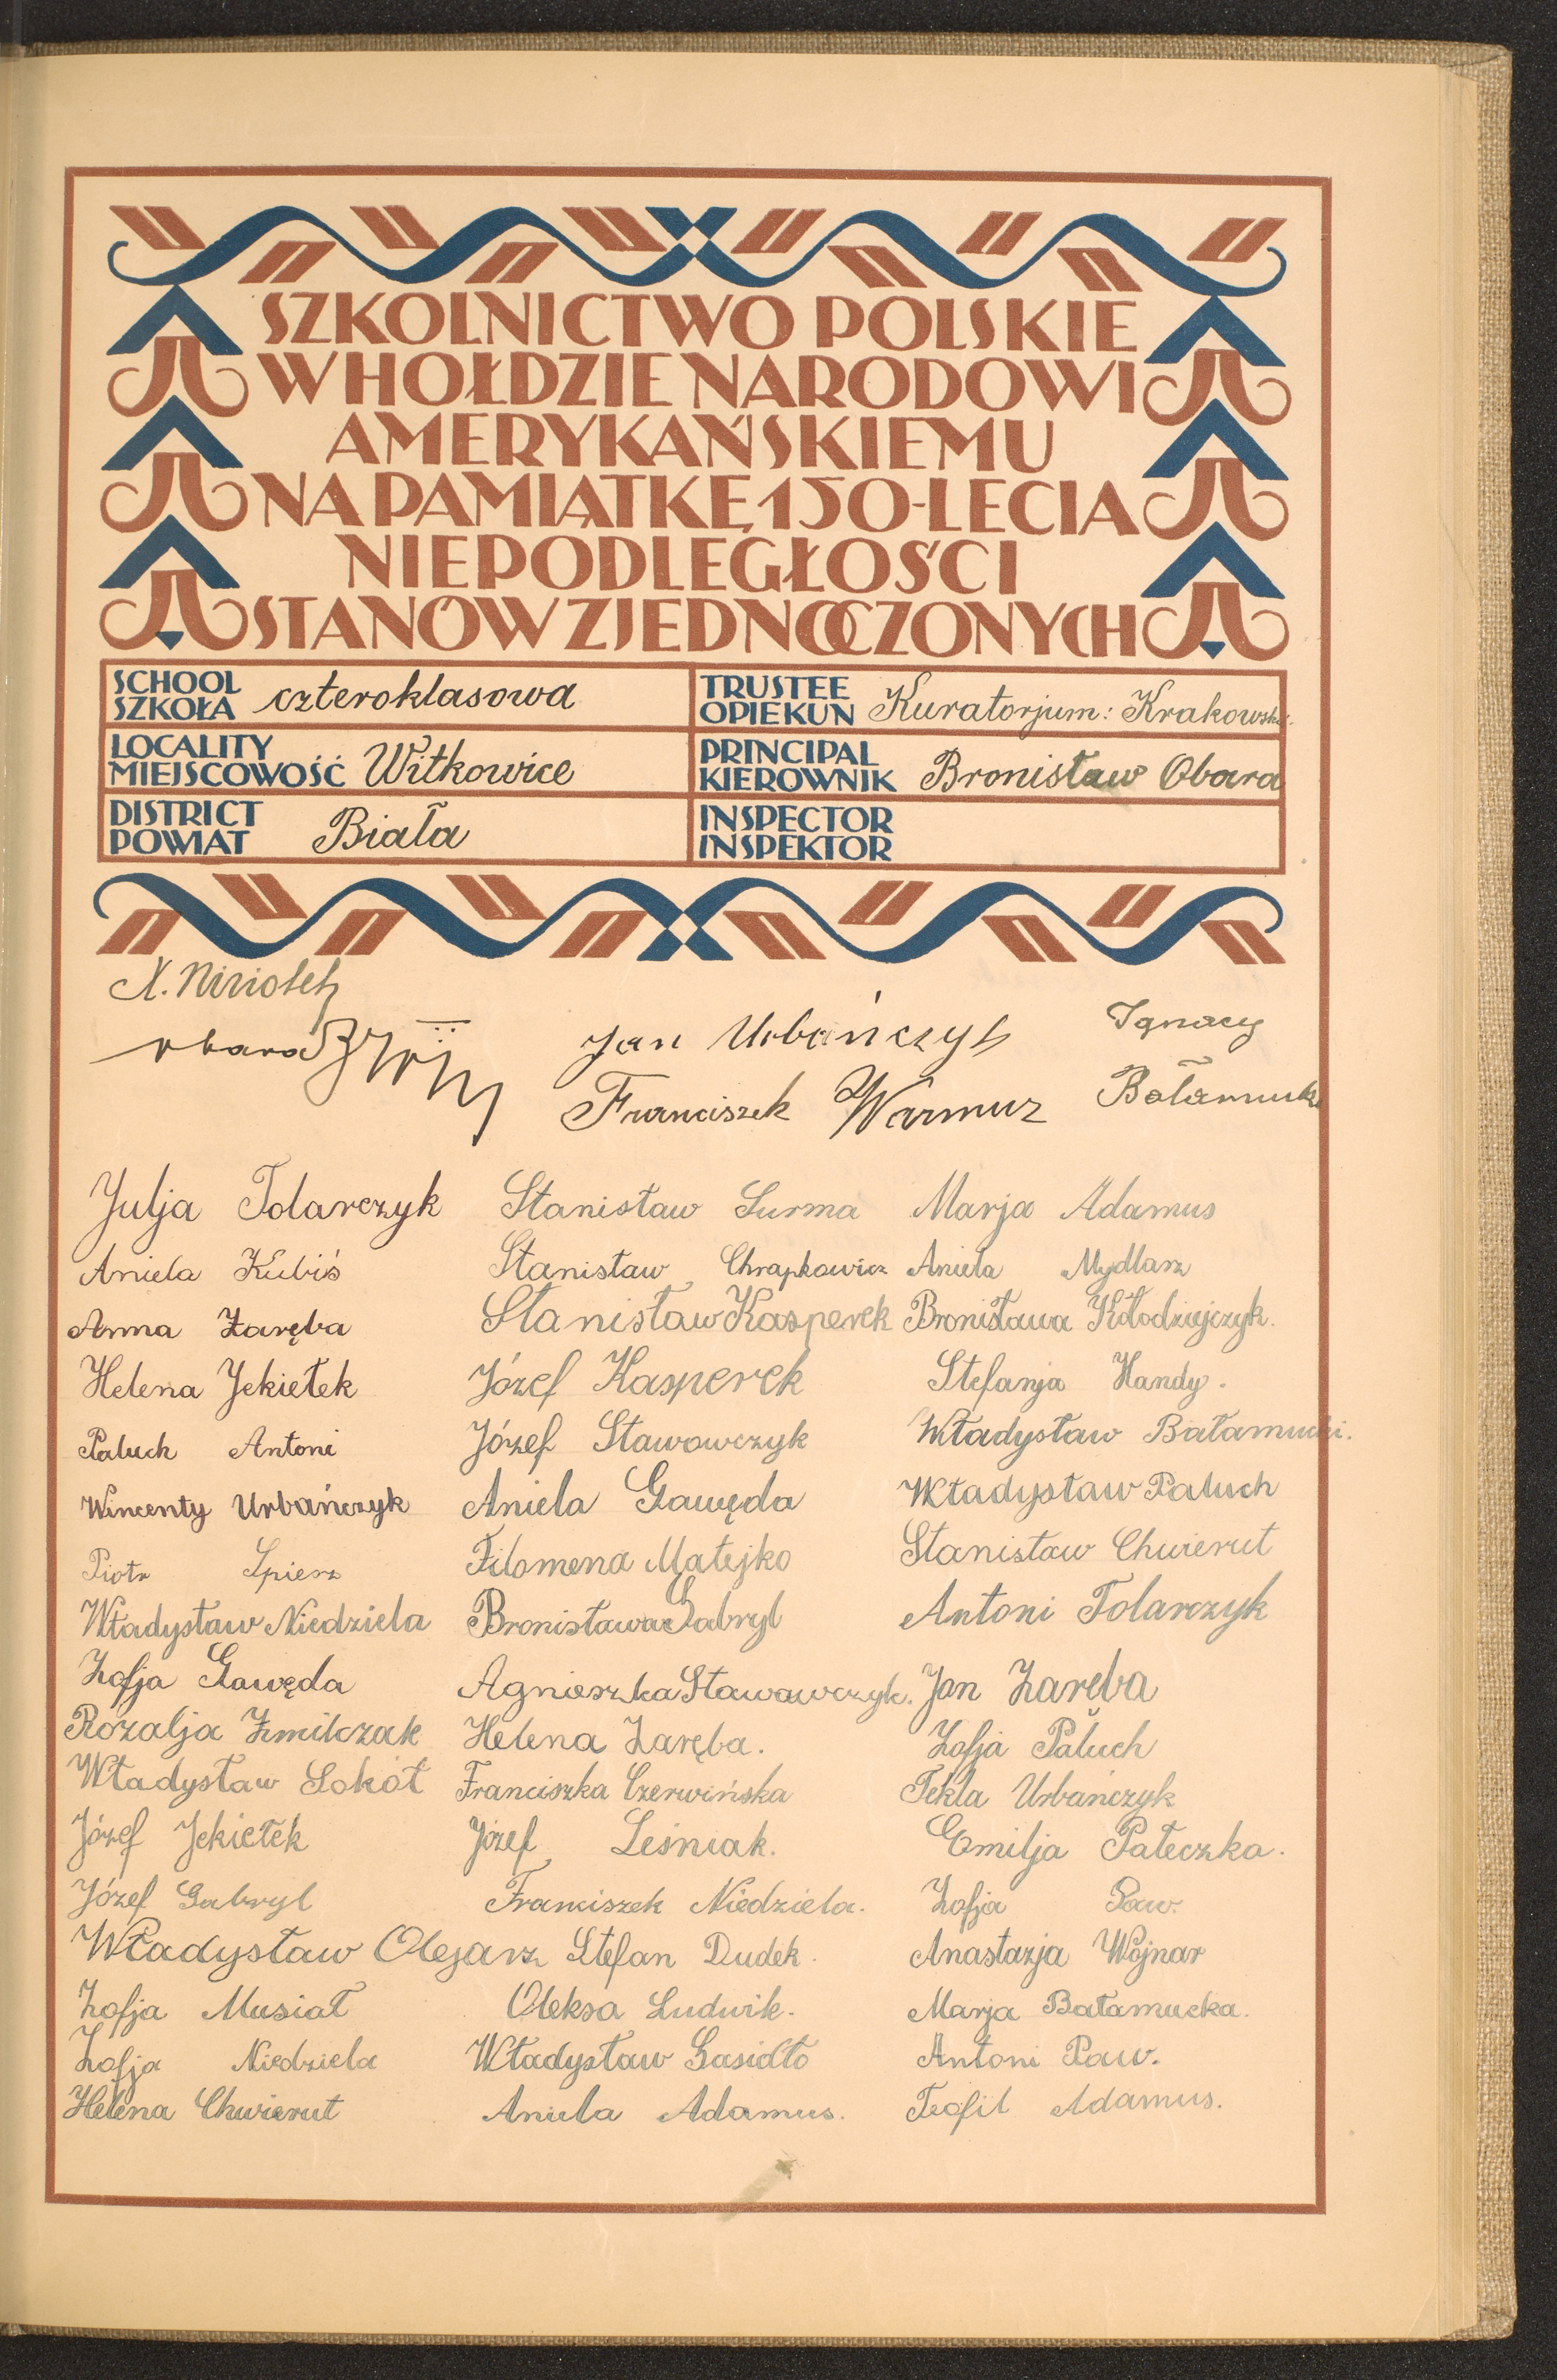 SZKOLNICTWO POLSKIE
W HOŁDZIE NARODOWI
AMERYKAŃSKIEMU
NA PAMIĄTKĘ 150-LECIA
NIEPODLEGŁOŚCI
STANÓW ZJEDNOCZONYCH
SCHOOL
SZKOŁA czteroklasowa
TRUSTEE
OPIEKUN Kuratorjum: Krakowskie
LOCALITY
MIEJSCOWOŚĆ Witkowice
PRINCIPAL
KIEROWNIK Bronisław Obara
DISTRICT
POWIAT Biała
INSPECTOR
INSPEKTOR
X. Niziołek
Obara
Jan Urbańczyk
Ignacy
Franciszek Warmuz
Bałamucki
Julja Tolarczyk Stanisław Surma Marja Adamus
Aniela Kubiś Stanisław Chrapkowicz Aniela Mydlarz
Anna Zaręba Stanisław Kasperek Bronisława Kołodziejczyk.
Helena Jekiełek Józef Kasperek Stefanja Handy.
Paluch Antoni Józef Stawowczyk Władysław Bałamucki.
Wincenty Urbańczyk Aniela Gawęda Władysław Paluch
Piotr Spierz Filomena Matejko Stanisław Chwierut
Władysław Niedziela Bronisława Gabryl Antoni Tolarczyk
Zofja Gawęda Agnieszka Stawawczyk. Jan Zaręba
Rozalja Żmilczak Helena Zaręba. Zofja Paluch
Władysław Sokół Franciszka Czerwińska Tekla Urbańczyk
Józef Jekiełek Józef Leśniak. Emilja Pałeczka.
Józef Gabryl Franciszek Niedziela. Zofja Paw.
Władysław Olejarz Stefan Dudek. Anastazja Wojnar
Zofja Musiał Oleksa Ludwik. Marja Bałamucka.
Zofja Niedziela Władysław Gasidło Antoni Paw.
Helena Chwierut Aniela Adamus. Teofil Adamus.